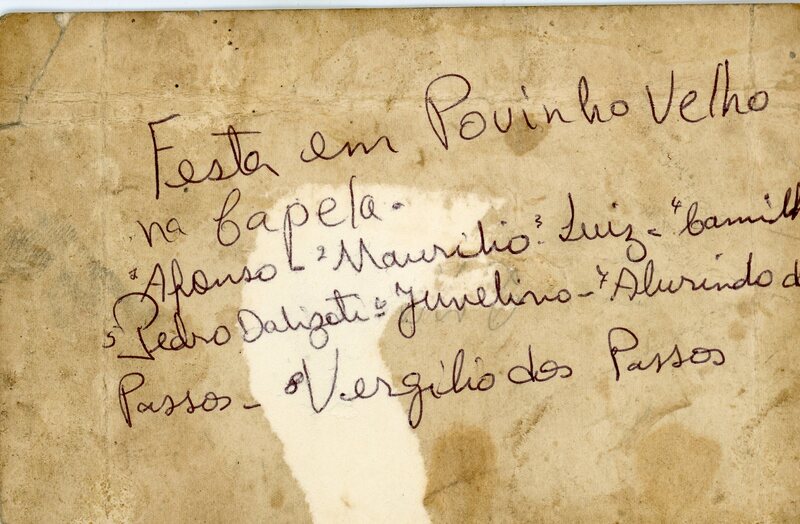 Festa em Povinho Velho
na Capela.
1 Afonso - 2 Maurilio. 3 Luiz - 4 Camilh
5 Pedro Dalizoti - 6 Juvelino - 7 Alurindo d
Passos - 8 Vergilio dos Passos